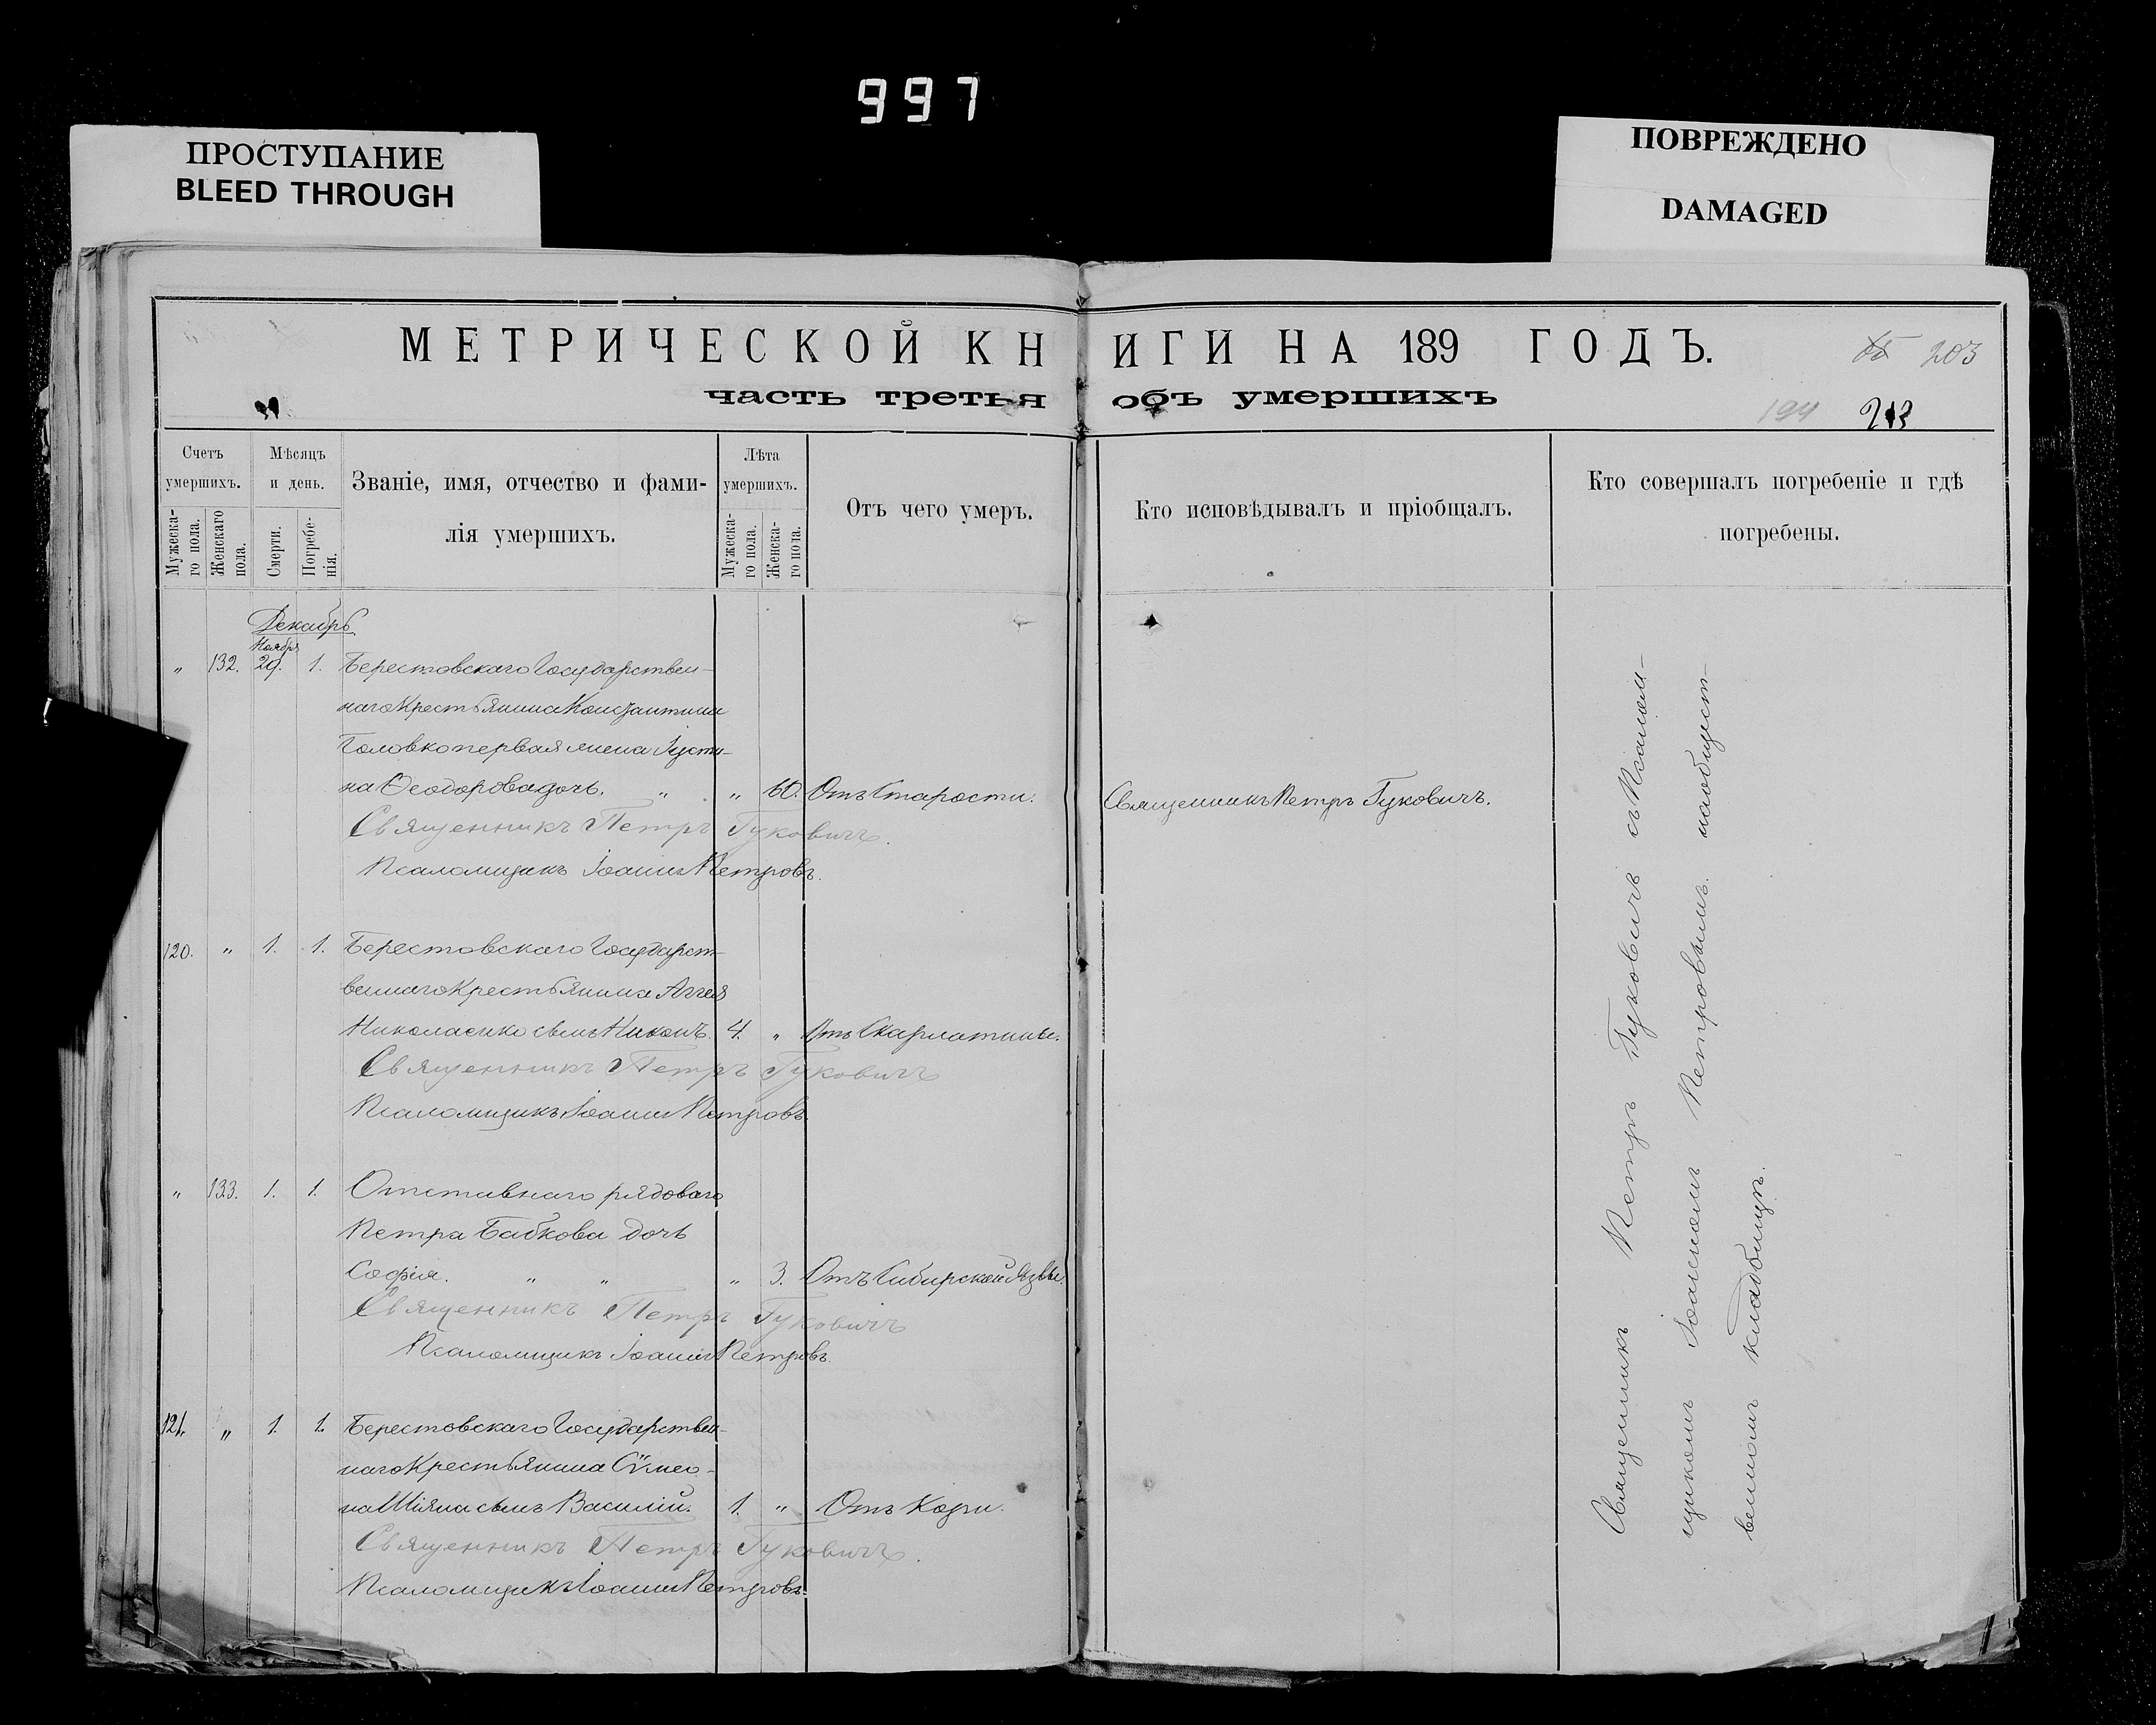 997
ПРОСТУПАНИЕ
BLEED THROUGH
ПОВРЕЖДЕНО
DAMAGED
МЕТРИЧЕСКОЙ КНИГИ НА 189 ГОДЪ.
203
часть третья объ умершихъ
194 213
Счетъ умершихъ.
Мужескаго пола.
Женскаго пола.
Мѣсяцъ и день.
Смерти.
Погребенія.
Званіе, имя, отчество и фами-
лія умершихъ.
Лѣта умершихъ.
Мужескаго пола.
Женскаго пола.
Отъ чего умеръ.
Кто исповѣдывалъ и пріобщалъ.
Кто совершалъ погребеніе и гдѣ
погребены.
Декабрь
Ноября
„ 132. 29. 1. Берестовскаго Государствен-
наго Крестьянина Константина
Головко первая жена Іусти-
на Ѳеодорова дочь. „ „ 60. Отъ Старости. Священникъ Петръ Гуковичъ.
Священникъ Петръ Гуковичъ.
Псаломщикъ Іоаннъ Петровъ.
120. „ 1. 1. Берестовскаго Государст-
веннаго Крестьянина Аггея
Николаенко сынъ Никонъ. 4. „ Отъ Скарлатины.
Священникъ Петръ Гуковичъ
Псаломщикъ Іоаннъ Петровъ.
„ 133. 1. 1. Отставнаго рядоваго
Петра Бабкова дочь
Софія. „ „ „ 3. Отъ Сибирской Язвы.
Священникъ Петръ Гуковичъ
Псаломщикъ Іоаннъ Петровъ.
121. „ 1. 1. Берестовскаго Государствен-
наго Крестьянина Сѵмео-
на Шіяна сынъ Василій. 1. „ Отъ Кори.
Священникъ Петръ Гуковичъ.
Псаломщикъ Іоаннъ Петровъ.
Священникъ Петръ Гуковичъ съ Псалом-
щикомъ Іоанномъ Петровымъ. на общест-
венномъ кладбищѣ.